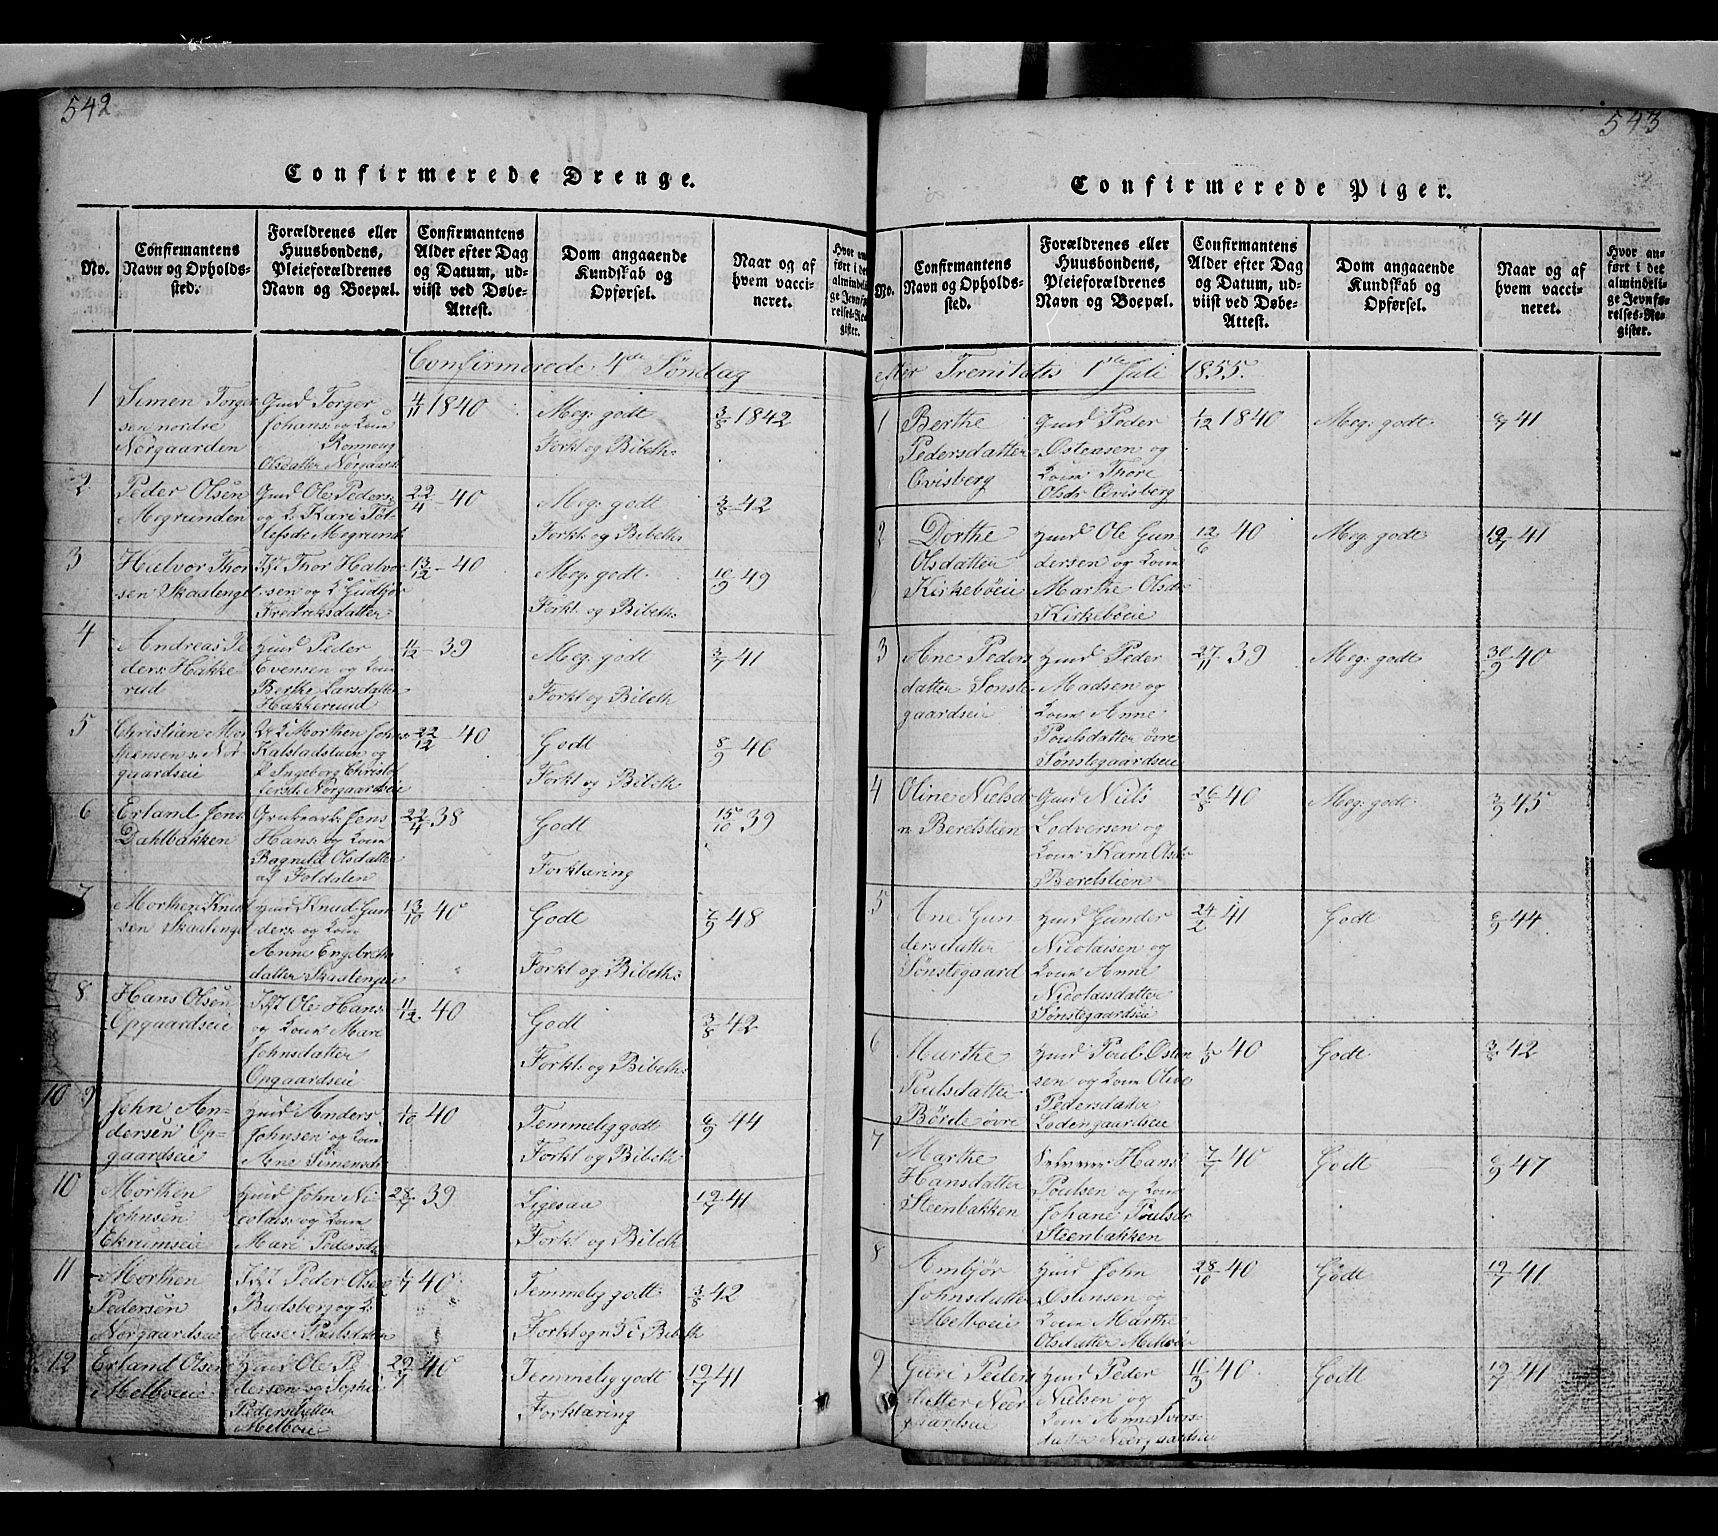 542
Confirmerede Drenge.
No.
Confirmantens
Navn og Opholds-
sted.
Forældrenes eller
Huusbondens,
Pleieforældrenes
Navn og Boepæl.
Confirmantens
Alder efter Dag
og Datum, ud-
viist ved Døbe-
Attest.
Dom angaaende
Kundskab og
Opførsel.
Naar og af
hvem vacci-
neret.
Hvor an-
ført i det
almindeli-
ge Jevnfø-
relses-Re-
gister.
Confirmerede 4de Søndag
1
Simen Torger
sen nordre
Norgaarden
Gmd Torger
Johans: og Kone
Ronnoug
Olsdatter Norgaard
4/11 1840
Meg: godt
Forkl og Bibelh:
3/8 1842
2
Peder Olsen
Megrunden
Gmd Ole Peders:
og K. Kari Tol
lefsdr Megrund
22/4 - 40
Meg: godt
Forkl: og Bibelh:
3/8 - 42
3
Halvor Thor
sen Skaalenget
Ist Thor Halvor
sen og K. Gudbjør
Fredriksdatter
13/12 - 40
Meg: godt.
Forkl. og Bibelh:
10/9 49
4
Andreas Pe
ders: Hakke
rud
Huusmd Peder
Evensen og Kone
Berthe Larsdatter
Hakkerud
1/12 - 39
Meg: godt
Forkl og Bibelh
3/7 - 41
5
Christian Mor
thensen Nor
gaardseie
Morthen Johns:
Kalstadstuen og
P. Ingeborg Christof
fersd: Norgaardseie
22/12 - 40
Godt
Forkl. og Bibelh
8/9 - 46
6
Erland Jens:
Dahlbakken
Grubearb: Jens
Hans: og Kone
Ragnild Olsdatter
af Foldalen
22/4 38
Godt
Forklaring
15/10 39
7
Morthen Knud
sen Skaalenget
Huusmd Knud Gun
ders: og Kone
Anne Engebreths
datter Skaalengeie
13/10 40
Godt
Forkl og Bibelh:
7/9 - 48
8
Hans Olsen
Opgaardseie
Ist Ole Hans:
og Kone Mari
Johnsdatter
Opgaardseie
11/12 40
Godt
Forkl: og Bibelh:
3/8 - 42
10 9
John An-
dersen Op-
gaardseie
Huusmd Anders
Johnsen og Kone
Ane Simensdr
1/10 40
Temmelig godt
Forkl og Bibelh
6/9 - 44
10
Morthen
Johnsen
Ekrumseie
Huusmd John Ni
colais: og Kone
Mari Pedersdr
28/7 39
Ligesaa
Forkl. og Bibelh
19/7 - 41
11
Morthen
Pedersen
Norgaardseie
Ist Peder Olsen
Budsberg og K:
Aase Paulsdatter
1/7 40
Temmelig godt.
Forkl og n S i Bibelh
3/8 42
12
Erland Olsen
Melboeie
Huusmd Ole Pe
dersen og Sophie
Pedersdatter
Melboeie
29/7 40
Temmelig godt
Forklaring
19/7 41
543
Confirmerede Piger.
No.
Confirmantens
Navn og Opholds-
sted.
Forældrenes eller
Huusbondens,
Pleieforældrenes
Navn og Boepæl.
Confirmantens
Alder efter Dag
og Datum, ud-
viist ved Døbe-
Attest.
Dom angaaende
Kundskab og
Opførsel.
Naar og af
hvem vacci-
neret.
Hvor an-
ført i det
almindeli-
ge Jevnfø-
relses-Re-
gister.
efter Trenitatis 1ste Juli 1855.
1
Berthe
Pedersdatter
Qvisberg
Gmd Peder
Ostensen og
Kone Thore
Olsdr Qvisberg
1/12 1840
Meg: godt
41
2
Dorthe
Olsdatter
Kirkebøeie
Huusmd Ole Gun
dersen og Kone
Marthe Olsdr
Kirkebøeie
12/6 40
Meg: godt
19/7 41
3
Ane Peders
datter Sønste
gaardseie
Huusmd Peder
Madsen og
Kone Anne
Poulsdatter øvre
Sønstegaardseie
27/11 39
Meg: godt
30/9 40
4
Oline Nielsdr
n Beretslien
Gmd Niels
Lodversen og
Kone Karn Olsdr
Beretslien
26/8 40
Meg: godt.
3/9 45
5
Ane Gun
dersdatter
Sønstegaard
Huusmd Gunder
Nicolaisen og
Kone Anne
Nicolaisdatter
Sønstegaardseie
24/2 41
Godt
6/9 - 44
6
Marthe
Poulsdatter
Børde øvre
Huusmd Poul Osten
sen og Kone Olive
Pedersdatter
Lodengaardseie
1/5 40
Godt
3/8 42
7
Marthe
Hansdatter
Steenbakken
Hans
Poulsen og Kone
Johane Poulsdr
Steenbakken
7/7 40
Godt
6/9 47
8
Ambjør
Johnsdatter
Melboeie
Huusmd John
Ostensen og
Kone Marthe
Olsdatter Melboeie
28/10 40
Godt
19/7 41
9
Guri Peders
datter Neer
gaardseie
Huusmd Peder
Nielsen og
Kone Anne Ivers
datter Neergaardseie
11/3 40
Godt
19/7 - 41